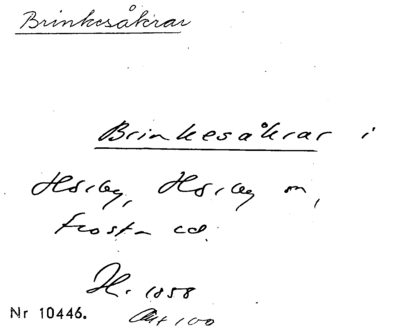 Brinkesåkrar
Brinkesåkrar i
Hörby, Hörby sn,
Frosta hd.
H. 1858
Akt 100
Nr 10446.